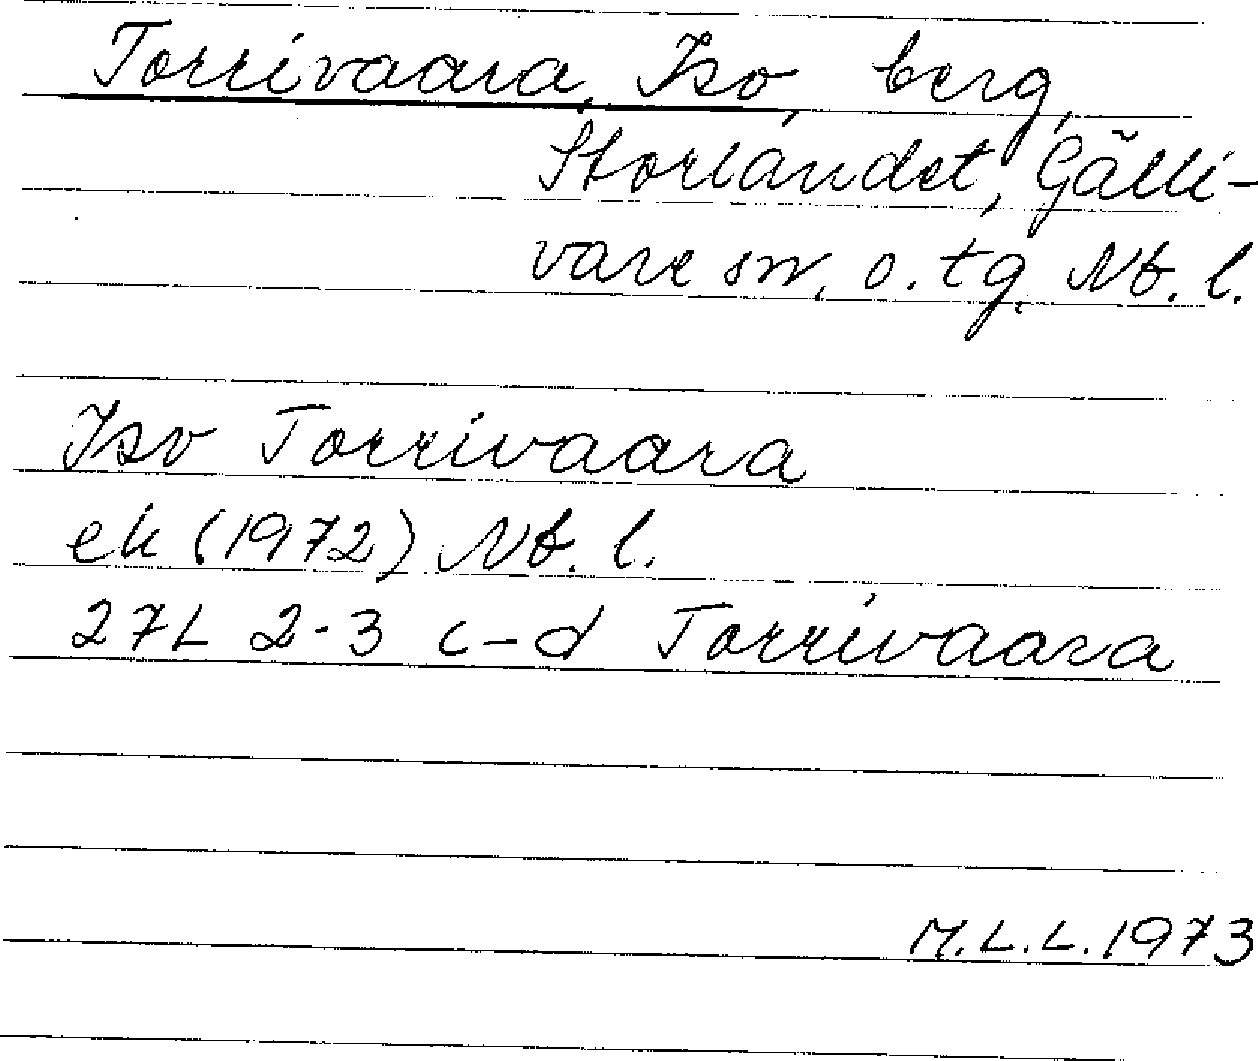 Torrivaara, Iso, berg,
Storlandet, Gälli-
vare sn. o. tg. Nb. l.
Iso Torrivaara
ek (1972) Nb. l.
27L 2-3 c-d Torrivaara
M.L.L. 1973